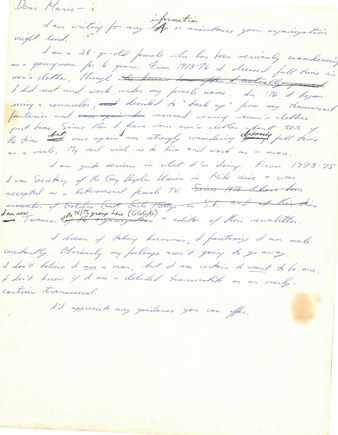 Dear Mario –
I am writing for any information or assistance your organization
might lend.
I am a 28-yr-old female who has been seriously considering
as a young man for 6 years. From 1973-76 I dressed full time in
men's clothes, though
I did not and work under my female name. In '76 I began
seeing a counselor, and decided to "back up" from my transsexual
fantasies and wearing women's clothes
part time. Since then I have worn men's clothes about 50% of
the time but once again am strongly considering dressing full time
as a male. My real wish is to live and work as a man.
I am quite serious in what I'm doing. From 1973-75
I was Secretary of the Gay Peoples Union in Milwaukee & was
accepted as a heterosexual female TV. Since 1975 I have been
a member of Golden Gate Girls/Guys in S.F. and at this time
I am now Treasurer of the TV/TS group here (GGG/G) & editor of their newsletter.
I dream of taking hormones, I fantasize I am male
constantly. Obviously my feelings aren't going to go away.
I don't believe I am a man, but I am certain I want to be one.
I don't know if I am a deluded transvestite or an overly-
cautious transsexual.
I'd appreciate any guidance you can offer.